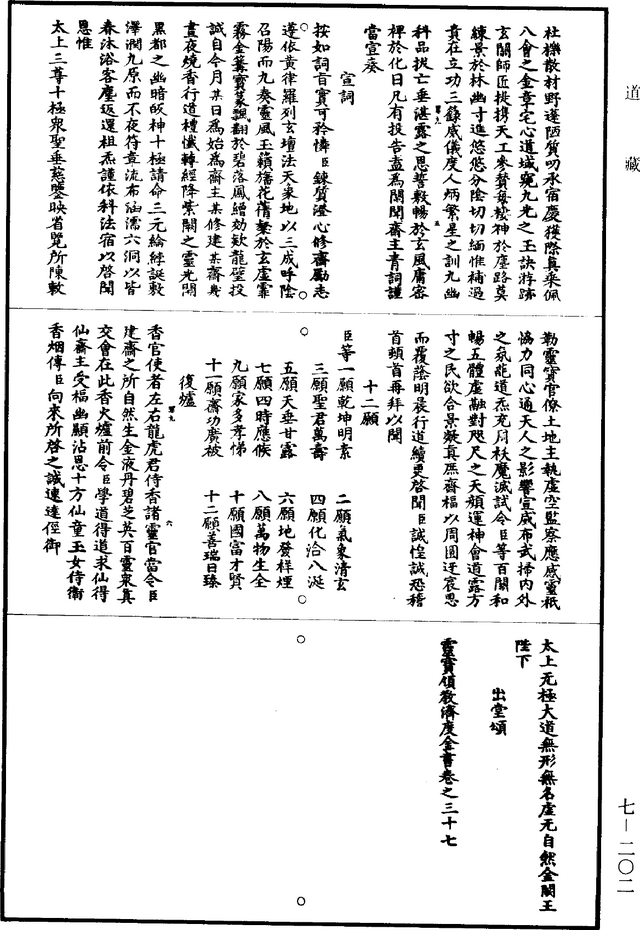 道藏
社櫟散材野蓬陋質叨承宿慶獲際真乘佩
八會之金章宅心道域窺九光之玉訣游跡
玄關師匠提携天工參贊每棲神於塵路莫
練景於林幽寸進悠悠分陰切切緬惟補過
貴在立功三籙威儀度人炳繁星之訓九幽
科品拔亡垂湛露之恩誓敷暢於玄風庸密
裨於化日凡有投告盍為聞聞齋主青詞謹
當宣奏
宣詞
按如詞旨實可矜憐臣鍊質澄心修齋勵志
遵依黃律羅列玄壇法天象地以三成呼陰
召陽而九奏靈風玉籟旛花蓊藹於玄虛霏
霧金篝寶篆飄翻於碧落鳳繒効欵龍璧投
誠自今月某日為始為齋主某修建某齋幾
晝夜燒香行道禮懺轉經降紫關之靈光開
黑都之幽暗皈神十極請命三元綸綍誕敷
澤潤九原而不夜符章流布治濡六洞以皆
春沐浴客塵返還祖炁謹依科法宿以啓聞
恩惟
太上三尊十極衆聖垂慈鑒映省覽所陳敕
勒靈寶官僚土地主執虛空監察應感靈祇
協力同心通天人之影響宣威布武掃內外
之氛龍道炁充周秋魔滅試令臣等百關和
暢五體虛融對咫尺之天顏運神會道露方
寸之民欲合景凝真庶齋福以周圓迂哀思
而覆蔭明晨行道續更啓聞臣誠惶誠恐稽
首頓首再拜以聞
十二願
臣等一願乾坤明素 二願氣象清玄
三願聖君萬壽 四願化洽八涎
五願天垂甘露 六願地發祥煙
七願四時應候 八願萬物生全
九願家多孝悌 十願國富才賢
十一願齋功廣被 十二願善瑞日臻
復爐
香官使者左右龍虎君侍香諸靈官當令臣
建齋之所自然生金液丹碧芝英百靈衆真
交會在此香火爐前令臣學道得道求仙得
仙齋主受福幽顯沾恩十方仙童玉女侍衛
香烟傳臣向來所啓之誠速達徑御
太上无極大道無形無名虛无自然金闕玉
陛下
出堂頌
靈寶領教濟度金書卷之三十七
七—二〇二